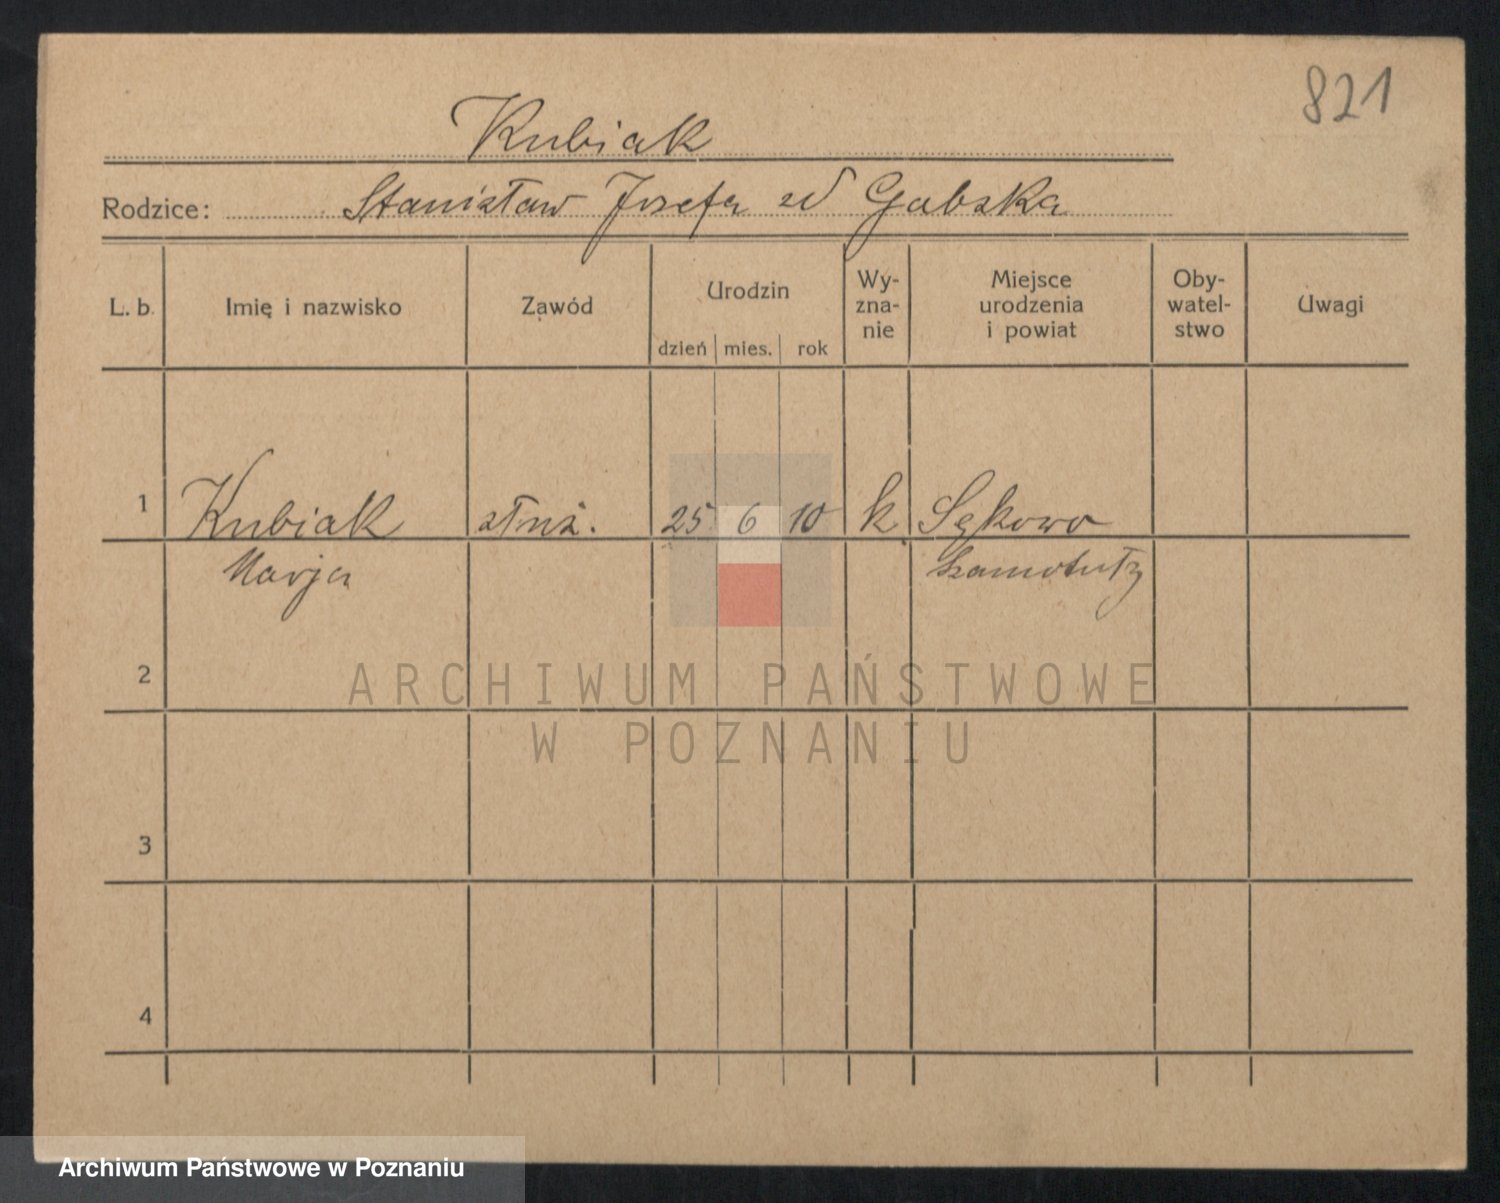 821
Kubiak
Rodzice: Stanisław Jozefa zd Gabska
L. b. Imię i nazwisko Zawód Urodzin dzień mies. rok Wy-zna-nie Miejsce urodzenia i powiat Oby-watel-stwo Uwagi
1 Kubiak służ. 25 6 10 k Sękowo
Marja Szamotuły
2
ARCHIWUM PAŃSTWOWE
W POZNANIU
3
4
Archiwum Państwowe w Poznaniu